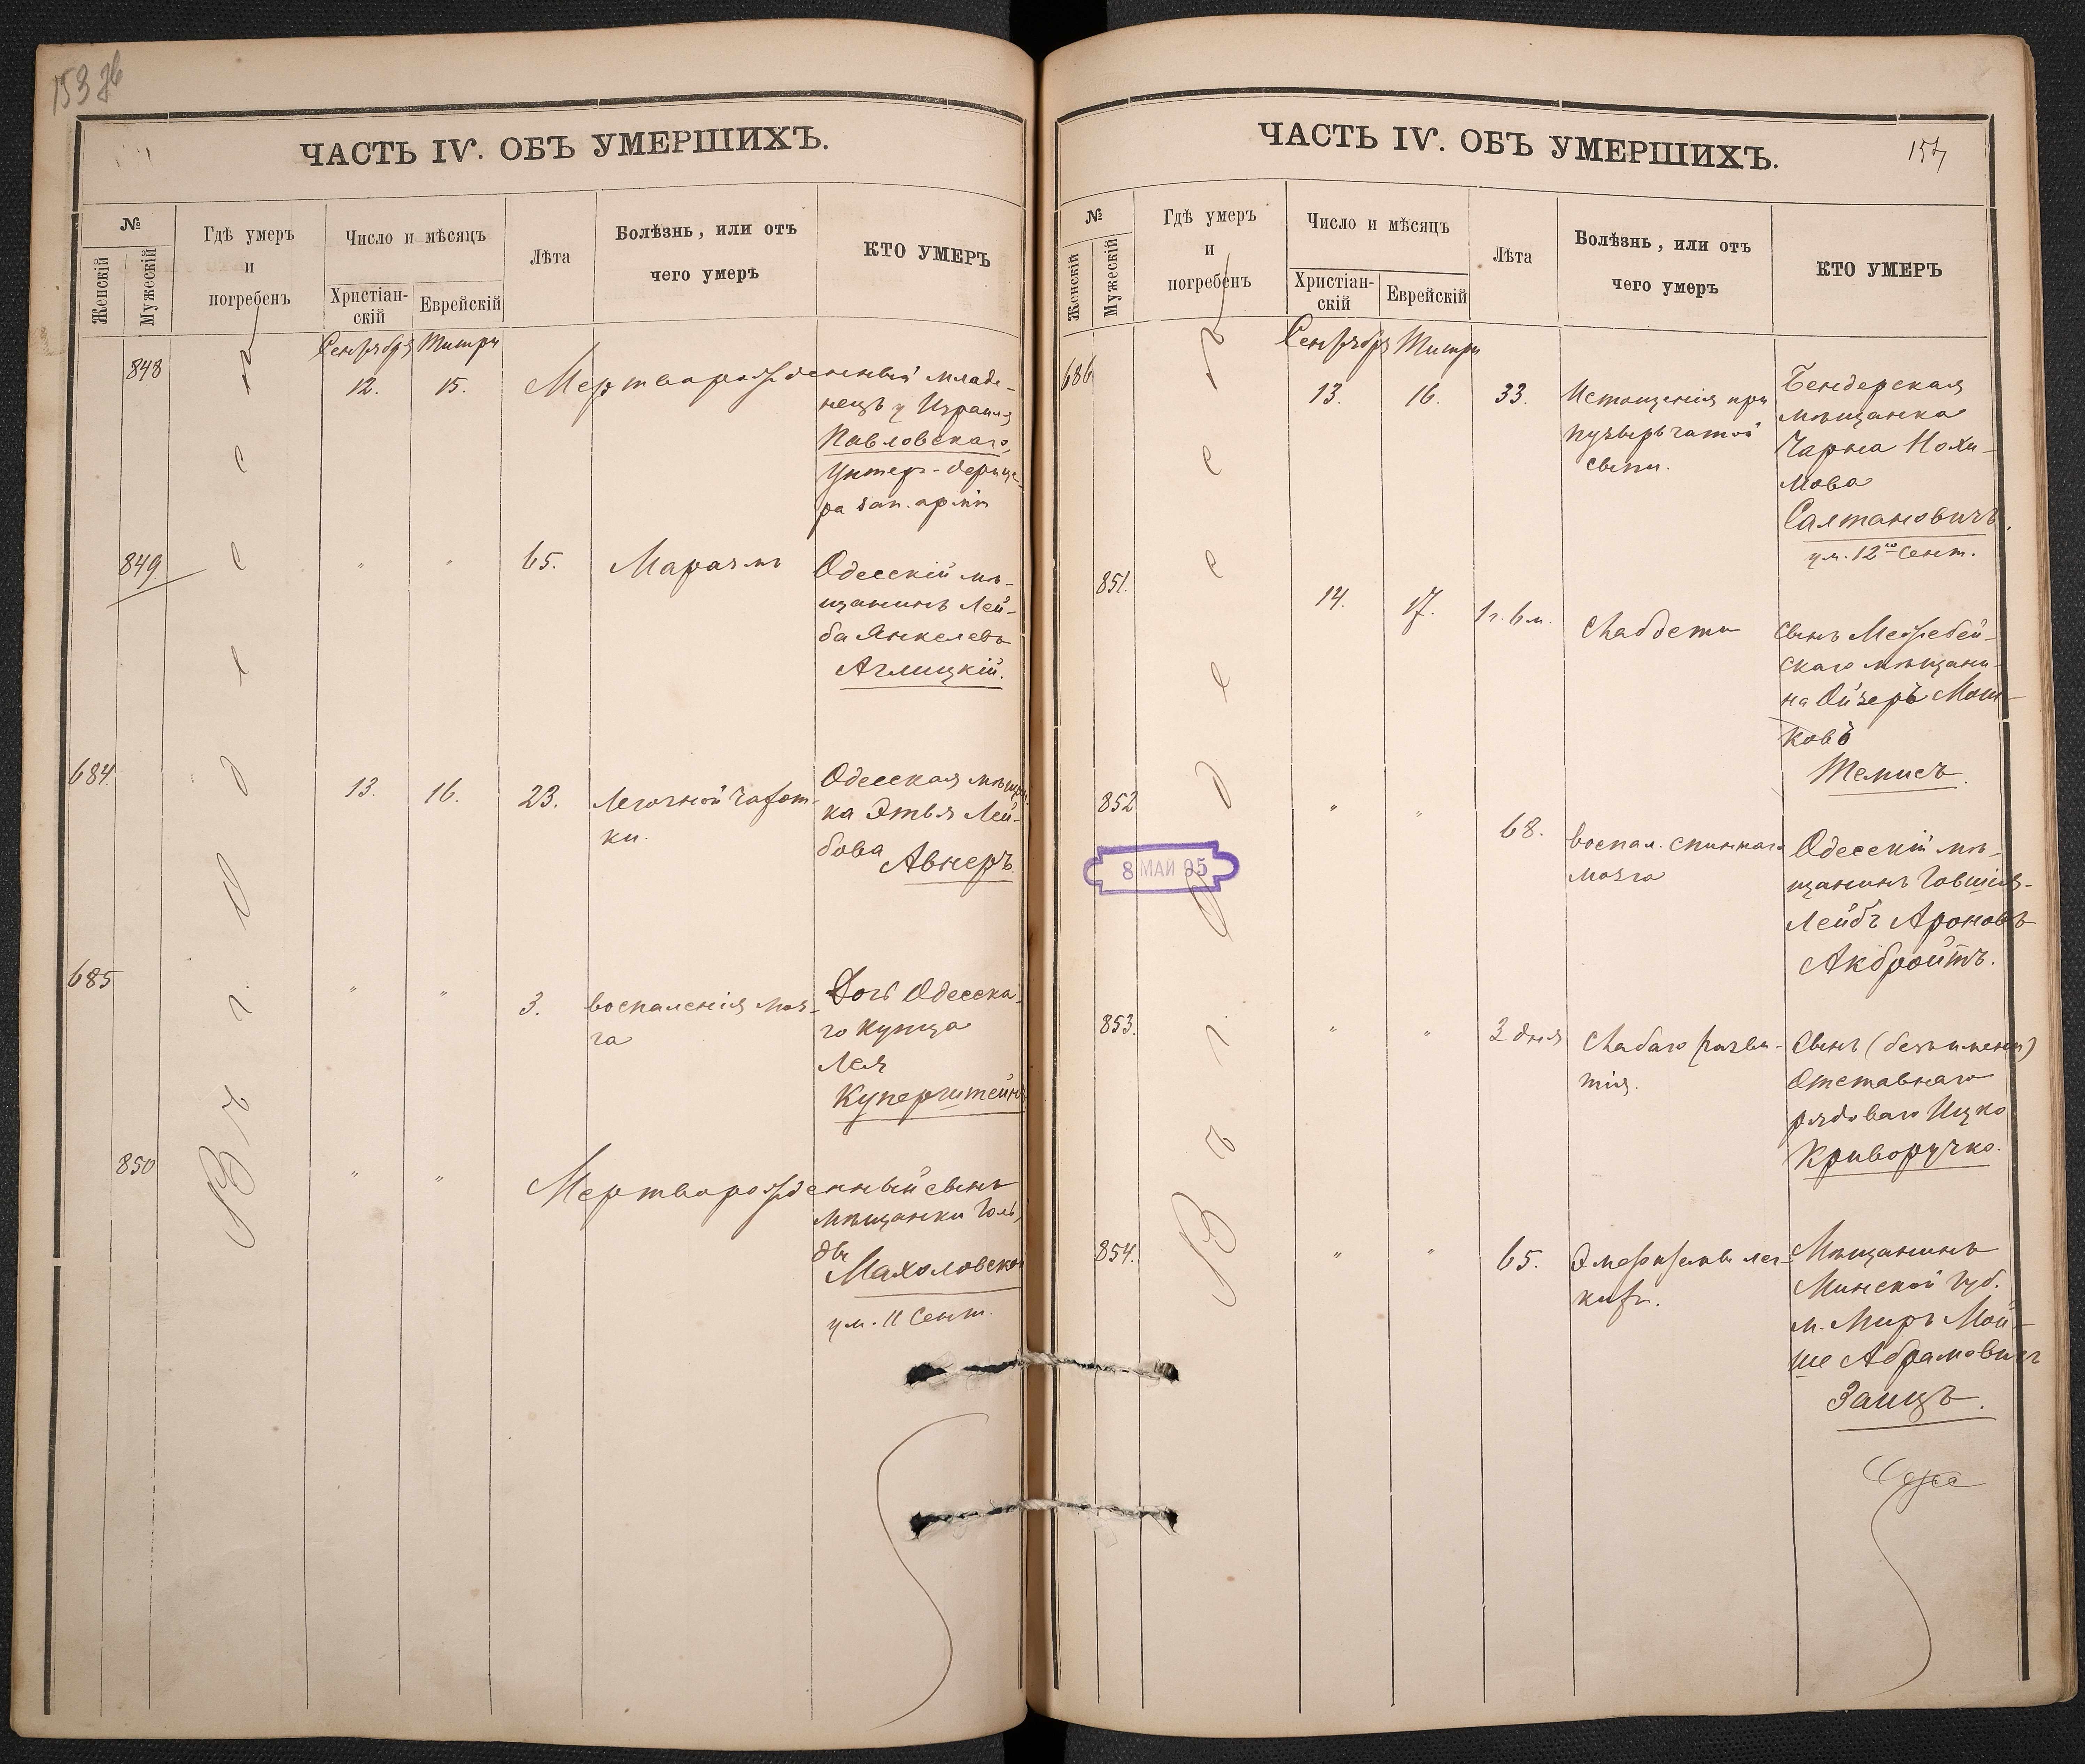 153 об
ЧАСТЬ IV. ОБЪ УМЕРШИХЪ.
№
Женскій
Мужескій
Гдѣ умеръ
и
погребенъ
Число и мѣсяцъ
Христіан-
скій
Еврейскій
Лѣта
Болѣзнь, или отъ
чего умеръ
КТО УМЕРЪ
Въ г. Одессѣ
Сентября Тишри
848 12. 15. Мерторожденный младе-
нецъ у Израиля
Павловскаго,
Унтеръ-офице-
ра зап. арміи
849 " " 65. Маразмъ Одесскій мѣ-
щанинъ Лей-
ба Янкелевъ
Аглицкій.
684. 13. 16. 23. Легочной чахот-
ки.
Одесская мѣщан-
ка Этья Лей-
бова
Авнеръ.
685 " " 3. воспаленія моз-
га
Дочь Одесска-
го купца
Лея
Куперштейнъ
850 " " Мертворожденный сынъ
мѣщанки Голь-
ды
Махоловской
ум. 11 Сент.
ЧАСТЬ IV. ОБЪ УМЕРШИХЪ.
154
№
Женскій
Мужескій
Гдѣ умеръ
и
погребенъ
Число и мѣсяцъ
Христіан-
скій
Еврейскій
Лѣта
Болѣзнь, или отъ
чего умеръ
КТО УМЕРЪ
Въ г. Одессѣ
Сентября Тишри
686 13. 16. 33. Истощенія при
пузырьчатой
сыпи.
Бендерская
мѣщанка
Чарна Нохи-
мова
Салтановичъ.
ум. 12го Сент.
851. 14. 17. 1 г. 6 м. Слабости Сынъ Меджебей-
скаго мѣщани-
на Ойзеръ Мош-
ковъ
Темисъ.
852 " " 68. воспал. спиннаго
мозга
Одесскій мѣ-
щанинъ Говшія-
Лейбъ Ароновъ
Акбройтъ.
8 МАЙ 95
853. " " 3 дня Слабаго разви-
тія.
Сынъ (безъ имени)
Отставнаго
рядоваго Ицко
Криворучко.
854. " " 65. Эмфиземы лег-
кихъ.
Мѣщанинъ
Минской губ.
м. Миръ Мой-
ше Абрамовичъ
Заицъ.